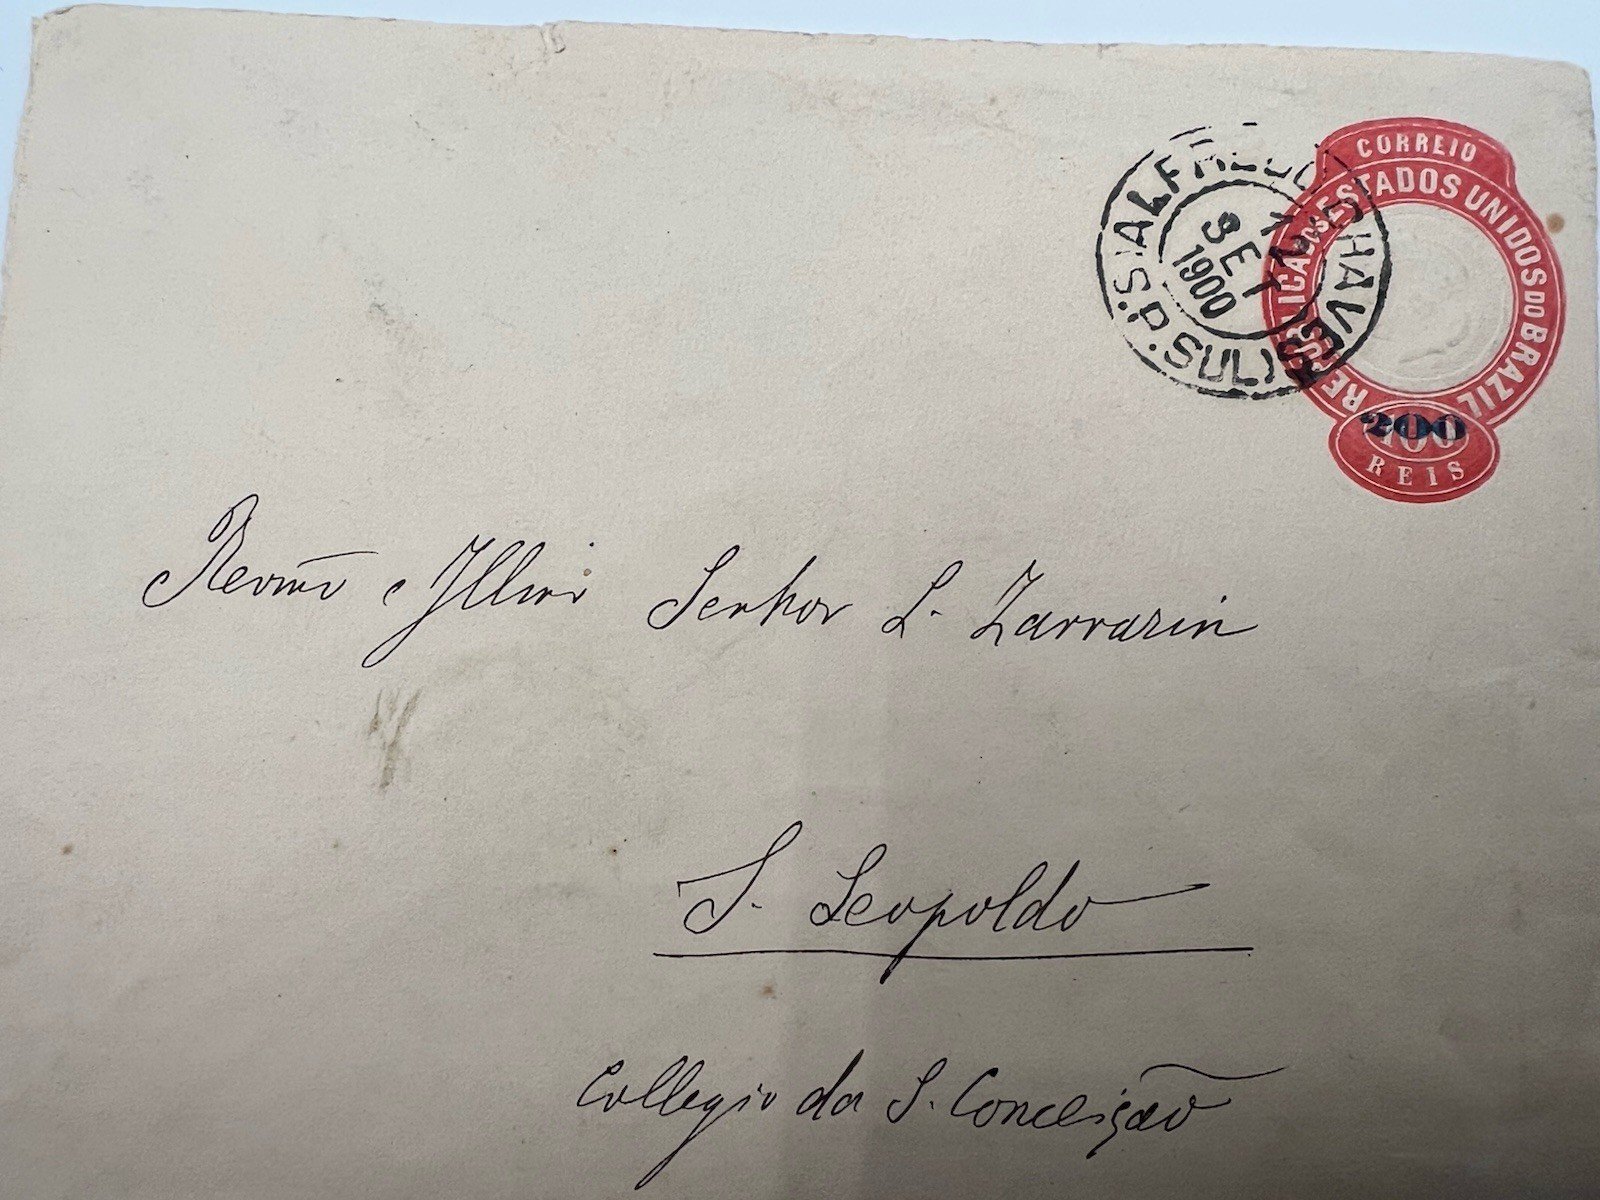 CORREIO
REPUBLICA DOS ESTADOS UNIDOS DO BRAZIL
200
REIS
ALFREDO CHAVES
SET
1900
S.P.SUL)
Revmo Illmo Senhor L. Zarrazin
S. Leopoldo
Collegio da S. Conceição